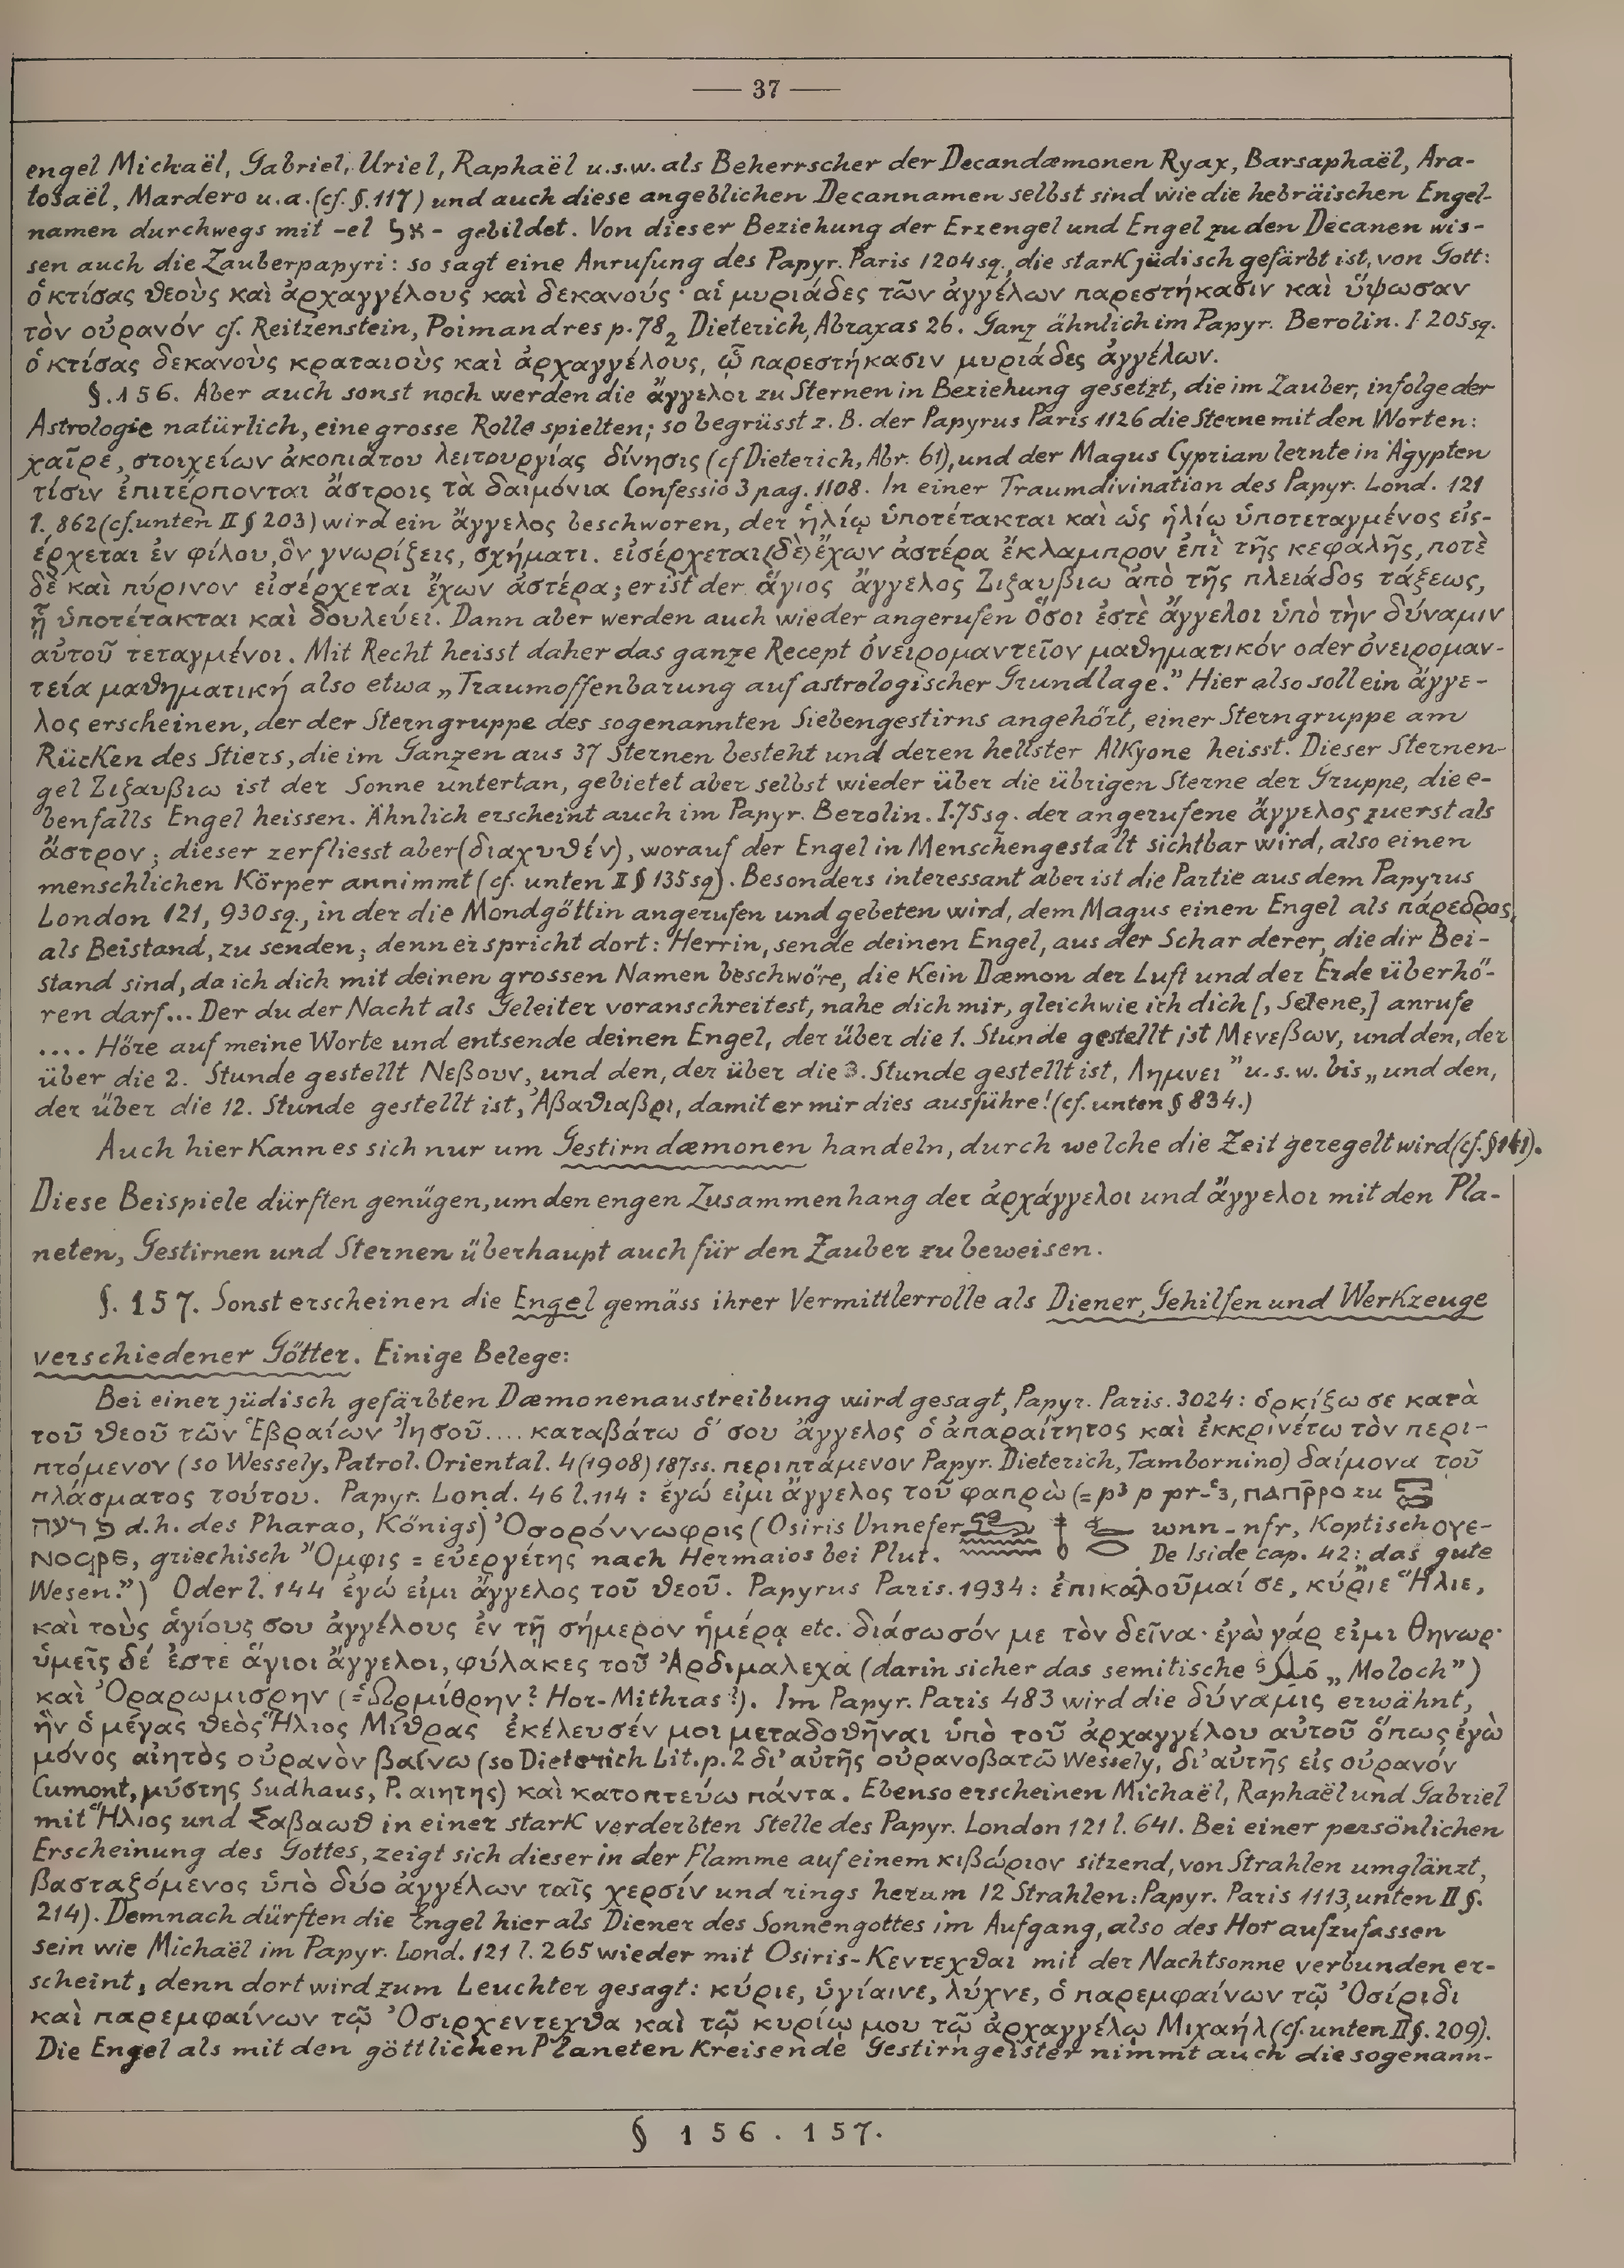 — 37 —
engel Michaël, Gabriel, Uriel, Raphaël u.s.w. als Beherrscher der Decandæmonen Ryax, Barsaphaël, Ara-
tosaël, Mardero u.a. (cf. §. 117) und auch diese angeblichen Decannamen selbst sind wie die hebräischen Engel-
namen durchwegs mit -el אל - gebildet. Von dieser Beziehung der Erzengel und Engel zu den Decanen wis-
sen auch die Zauberpapyri: so sagt eine Anrufung des Papyr. Paris 1204 sq., die stark jüdisch gefärbt ist, von Gott:
ὁ κτίσας θεοὺς καὶ ἀρχαγγέλους καὶ δεκανούς· αἱ μυριάδες τῶν ἀγγέλων παρεστήκασιν καὶ ὕψωσαν
τὸν οὐρανόν cf. Reitzenstein, Poimandres p. 78₂ Dieterich, Abraxas 26. Ganz ähnlich im Papyr. Berolin. I 205 sq.
ὁ κτίσας δεκανοὺς κραταιοὺς καὶ ἀρχαγγέλους, ᾧ παρεστήκασιν μυριάδες ἀγγέλων.
§. 156. Aber auch sonst noch werden die ἄγγελοι zu Sternen in Beziehung gesetzt, die im Zauber, infolge der
Astrologie natürlich, eine grosse Rolle spielten; so begrüsst z. B. der Papyrus Paris 1126 die Sterne mit den Worten:
χαῖρε, στοιχείων ἀκοπιάτου λειτουργίας δίνησις (cf Dieterich, Abr. 61), und der Magus Cyprian lernte in Ägypten
τίσιν ἐπιτέρπονται ἄστροις τὰ δαιμόνια Confessio 3 pag. 1108. In einer Traumdivination des Papyr. Lond. 121
l. 862 (cf. unten II § 203) wird ein ἄγγελος beschworen, der ἡλίῳ ὑποτέτακται καὶ ὡς ἡλίῳ ὑποτεταγμένος εἰς-
έρχεται ἐν φίλου, ὃν γνωρίζεις, σχήματι. εἰσέρχεται ⟨δὲ⟩ ἔχων ἀστέρα ἔκλαμπρον ἐπὶ τῆς κεφαλῆς, ποτὲ
δὲ καὶ πύρινον εἰσέρχεται ἔχων ἀστέρα; er ist der ἅγιος ἄγγελος Ζιζαυβιω ἀπὸ τῆς πλειάδος τάξεως,
ᾗ ὑποτέτακται καὶ δουλεύει. Dann aber werden auch wieder angerufen ὅσοι ἐστὲ ἄγγελοι ὑπὸ τὴν δύναμιν
αὐτοῦ τεταγμένοι. Mit Recht heisst daher das ganze Recept ὀνειρομαντεῖον μαθηματικόν oder ὀνειρομαν-
τεία μαθηματική also etwa „Traumoffenbarung auf astrologischer Grundlage." Hier also soll ein ἄγγε-
λος erscheinen, der der Sterngruppe des sogenannten Siebengestirns angehört, einer Sterngruppe am
Rücken des Stiers, die im Ganzen aus 37 Sternen besteht und deren hellster Alkyone heisst. Dieser Sternen-
gel Ζιζαυβιω ist der Sonne untertan, gebietet aber selbst wieder über die übrigen Sterne der Gruppe, die e-
benfalls Engel heissen. Ähnlich erscheint auch im Papyr. Berolin. I. 75 sq. der angerufene ἄγγελος zuerst als
ἄστρον; dieser zerfliesst aber (διαχυθέν), worauf der Engel in Menschengestalt sichtbar wird, also einen
menschlichen Körper annimmt (cf. unten II § 135 sq). Besonders interessant aber ist die Partie aus dem Papyrus
London 121, 930 sq., in der die Mondgöttin angerufen und gebeten wird, dem Magus einen Engel als πάρεδρος,
als Beistand, zu senden; denn er spricht dort: Herrin, sende deinen Engel, aus der Schar derer, die dir Bei-
stand sind, da ich dich mit deinen grossen Namen beschwöre, die kein Dæmon der Luft und der Erde überhö-
ren darf... Der du der Nacht als Geleiter voranschreitest, nahe dich mir, gleichwie ich dich [, Selene,] anrufe
.... Höre auf meine Worte und entsende deinen Engel, der über die 1. Stunde gestellt ist Μενεβων, und den, der
über die 2. Stunde gestellt Νεβουν, und den, der über die 3. Stunde gestellt ist, Λημνει" u.s.w. bis „und den,
der über die 12. Stunde gestellt ist, Ἀβαθιαβρι, damit er mir dies ausführe! (cf. unten § 834.)
Auch hier kann es sich nur um Gestirndæmonen handeln, durch welche die Zeit geregelt wird (cf. § 141).
Diese Beispiele dürften genügen, um den engen Zusammenhang der ἀρχάγγελοι und ἄγγελοι mit den Pla-
neten, Gestirnen und Sternen überhaupt auch für den Zauber zu beweisen.
§. 157. Sonst erscheinen die Engel gemäss ihrer Vermittlerrolle als Diener, Gehilfen und Werkzeuge
verschiedener Götter. Einige Belege:
Bei einer jüdisch gefärbten Dæmonenaustreibung wird gesagt, Papyr. Paris. 3024: ὁρκίζω σε κατὰ
τοῦ θεοῦ τῶν Ἑβραίων Ἰησοῦ.... καταβάτω ὁ´ σου ἄγγελος ὁ ἀπαραίτητος καὶ ἐκκρινέτω τὸν περι-
πτόμενον (so Wessely, Patrol. Oriental. 4 (1908) 187 ss. περιπτάμενον Papyr. Dieterich, Tambornino) δαίμονα τοῦ
πλάσματος τούτου. Papyr. Lond. 46 l. 114: ἐγώ εἰμι ἄγγελος τοῦ φαπρὼ (= p³ p pr-ꜥ3, ⲡⲁⲡⲣ̄ⲣⲟ zu
פרעה d.h. des Pharao, Königs) Ὀσορόννωφρις (Osiris Unnefer wnn-nfr, Koptisch ⲟⲩⲉ-
ⲛⲟϥⲣⲉ, griechisch Ὄμφις = εὐεργέτης nach Hermaios bei Plut. De Iside cap. 42: das gute
Wesen.") Oder l. 144 ἐγώ εἰμι ἄγγελος τοῦ θεοῦ. Papyrus Paris. 1934: ἐπικαλοῦμαί σε, κύριε Ἥλιε,
καὶ τοὺς ἁγίους σου ἀγγέλους ἐν τῇ σήμερον ἡμέρᾳ etc. διάσωσόν με τὸν δεῖνα· ἐγὼ γάρ εἰμι Θηνωρ·
ὑμεῖς δέ ἐστε ἅγιοι ἄγγελοι, φύλακες τοῦ Ἀρδιμαλεχα (darin sicher das semitische „Moloch")
καὶ Ὀραρωμισρην (= Ὡρμίθρην? Hor-Mithras?). Im Papyr. Paris 483 wird die δύναμις erwähnt,
ἣν ὁ μέγας θεὸς Ἥλιος Μίθρας ἐκέλευσέν μοι μεταδοθῆναι ὑπὸ τοῦ ἀρχαγγέλου αὐτοῦ ὅπως ἐγὼ
μόνος αἰητὸς οὐρανὸν βαίνω (so Dieterich Lit. p. 2 δι' αὐτῆς οὐρανοβατῶ Wessely, δι' αὐτῆς εἰς οὐρανόν
Cumont, μύστης Sudhaus, P. αιητης) καὶ κατοπτεύω πάντα. Ebenso erscheinen Michaël, Raphaël und Gabriel
mit Ἥλιος und Σαβαωθ in einer stark verderbten Stelle des Papyr. London 121 l. 641. Bei einer persönlichen
Erscheinung des Gottes, zeigt sich dieser in der Flamme auf einem κιβώριον sitzend, von Strahlen umglänzt,
βασταζόμενος ὑπὸ δύο ἀγγέλων ταῖς χερσίν und rings herum 12 Strahlen: Papyr. Paris 1113, unten II §.
214). Demnach dürften die Engel hier als Diener des Sonnengottes im Aufgang, also des Hor aufzufassen
sein wie Michaël im Papyr. Lond. 121 l. 265 wieder mit Osiris-Κεντεχθαι mit der Nachtsonne verbunden er-
scheint, denn dort wird zum Leuchter gesagt: κύριε, ὑγίαινε, λύχνε, ὁ παρεμφαίνων τῷ Ὀσίριδι
καὶ παρεμφαίνων τῷ Ὀσιρχεντεχθα καὶ τῷ κυρίῳ μου τῷ ἀρχαγγέλῳ Μιχαήλ (cf. unten II §. 209).
Die Engel als mit den göttlichen Planeten kreisende Gestirngeister nimmt auch die sogenann-
§ 156. 157.